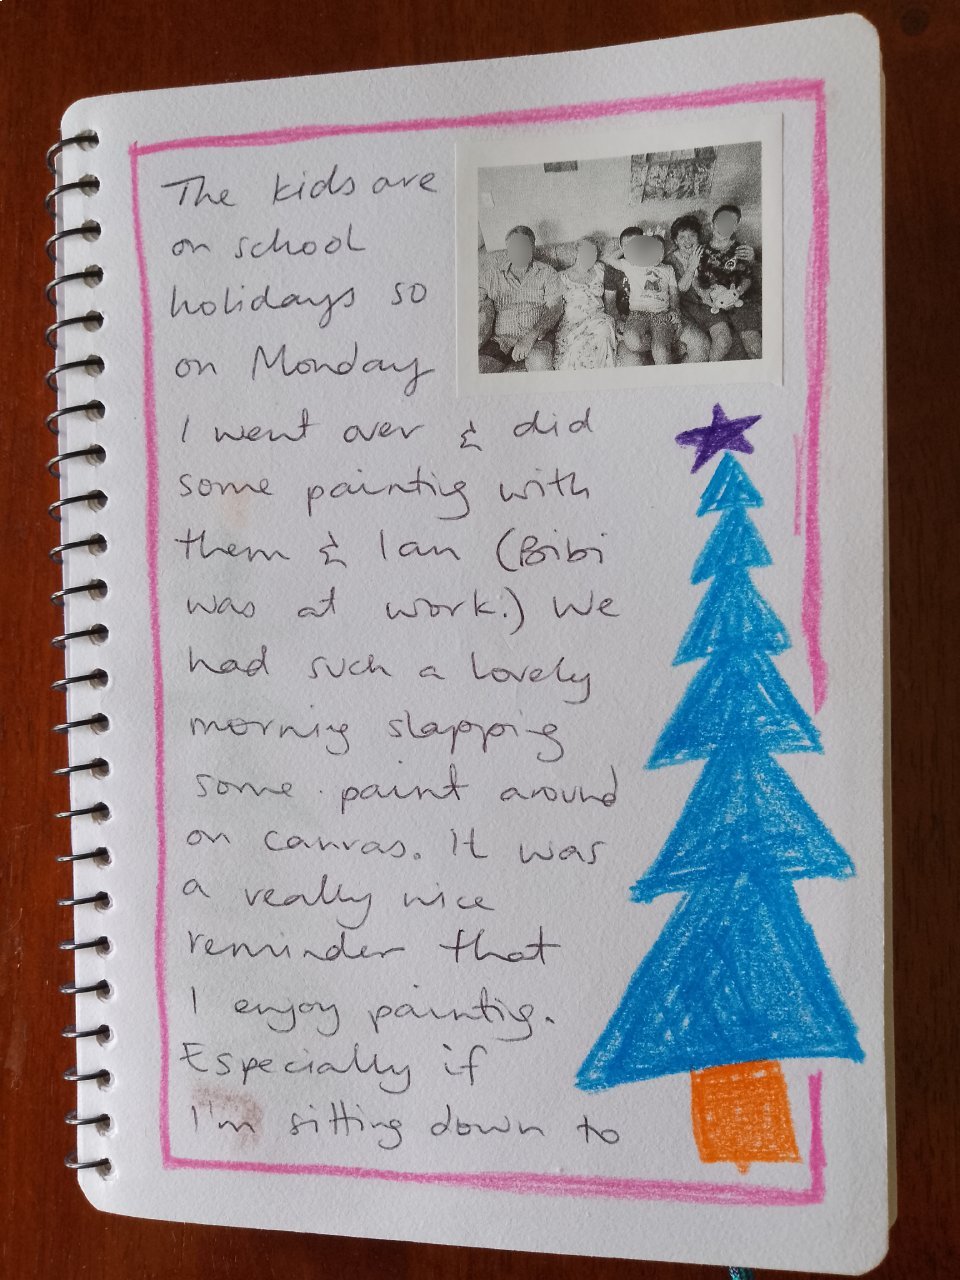 The kids are
on school
holidays so
on Monday
I went over & did
some painting with
them & Ian (Bibi
was at work.) We
had such a lovely
morning slapping
some paint around
on canvas. It was
a really nice
reminder that
I enjoy painting.
Especially if
I'm sitting down to